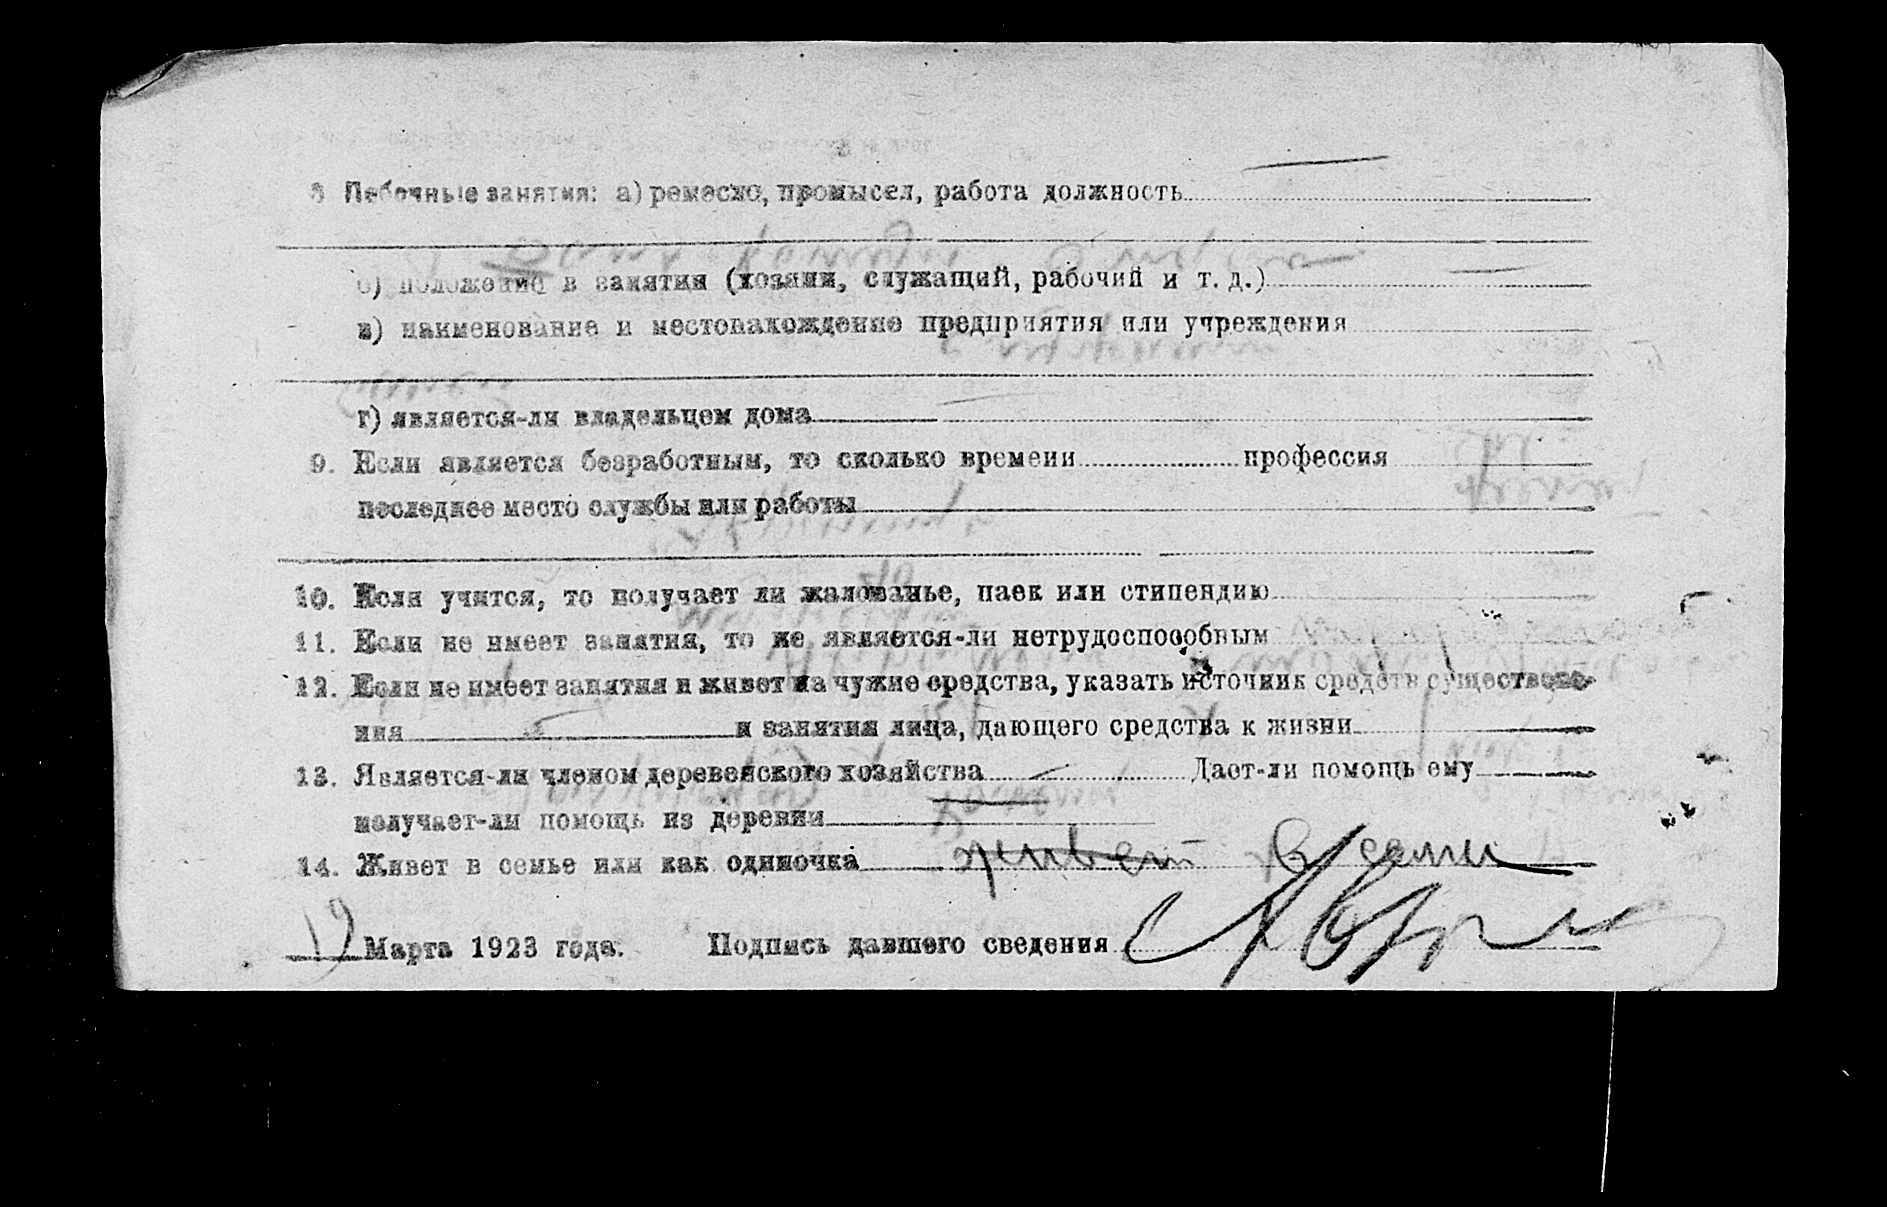 8 Побочные занятия: а) ремесло, промысел, работа должность
б) положение в занятии (хозяин, служащий, рабочий и т. д.)
в) наименование и местонахождение предприятия или учреждения
г) является-ли владельцем дома
9. Если является безработным, то сколько времени профессия
последнее место службы или работы
10. Если учится, то получает ли жалованье, паек или стипендию
11. Если не имеет занятия, то не является-ли нетрудоспособным
12. Если не имеет занятия и живет на чужие средства, указать источник средств существова-
ния и занятия лица, дающего средства к жизни
13. Является-ли членом деревенского хозяйства Дает-ли помощь ему
получает-ли помощь из деревни
14. Живет в семье или как одиночка живет в семьи
19 Марта 1923 года. Подпись давшего сведения